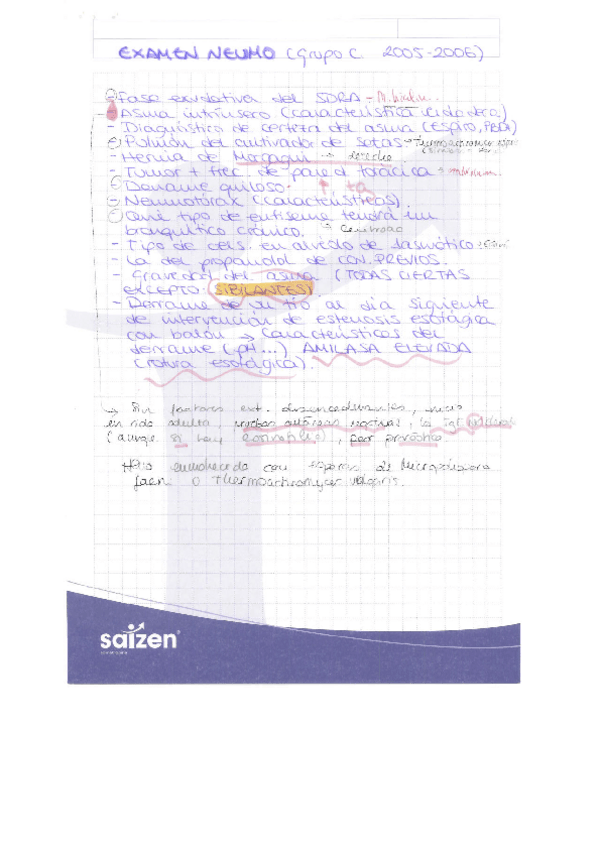 EXAMEN NEUMO (Grupo C. 2005-2006)
Fase exudativa del SDRA - M. hialina
- Asma intrínseco (característica verdadera)
- Diagnóstico de certeza del asma (ESPIRO, PBD)
Pulmón del cultivador de setas
- Hernia de Morgagni → derecha
- Tumor + frec. de pared torácica
Derrame quiloso.
- Neumotórax (características).
Qué tipo de enfisema tendrá un
bronquítico crónico.
- Tipo de céls. en alvéolo de asmático
- La del propandol de CON. PREVIOS.
- Gravedad del asma (TODAS CIERTAS
EXCEPTO SIBILANTES)
- Derrame de un tío al día siguiente
de intervención de estenosis esofágica
con balón → características del
derrame (pH...) AMILASA ELEVADA
(rotura esofágica).
↳ Sin factores ext. desencadenantes, inicio
en vida adulta, pruebas cutáneas normales,
(aunque sí hay), peor pronóstico
Heno enmohecido con esporas de Micropolispora
faeni o Thermoactinomyces vulgaris.
saizen